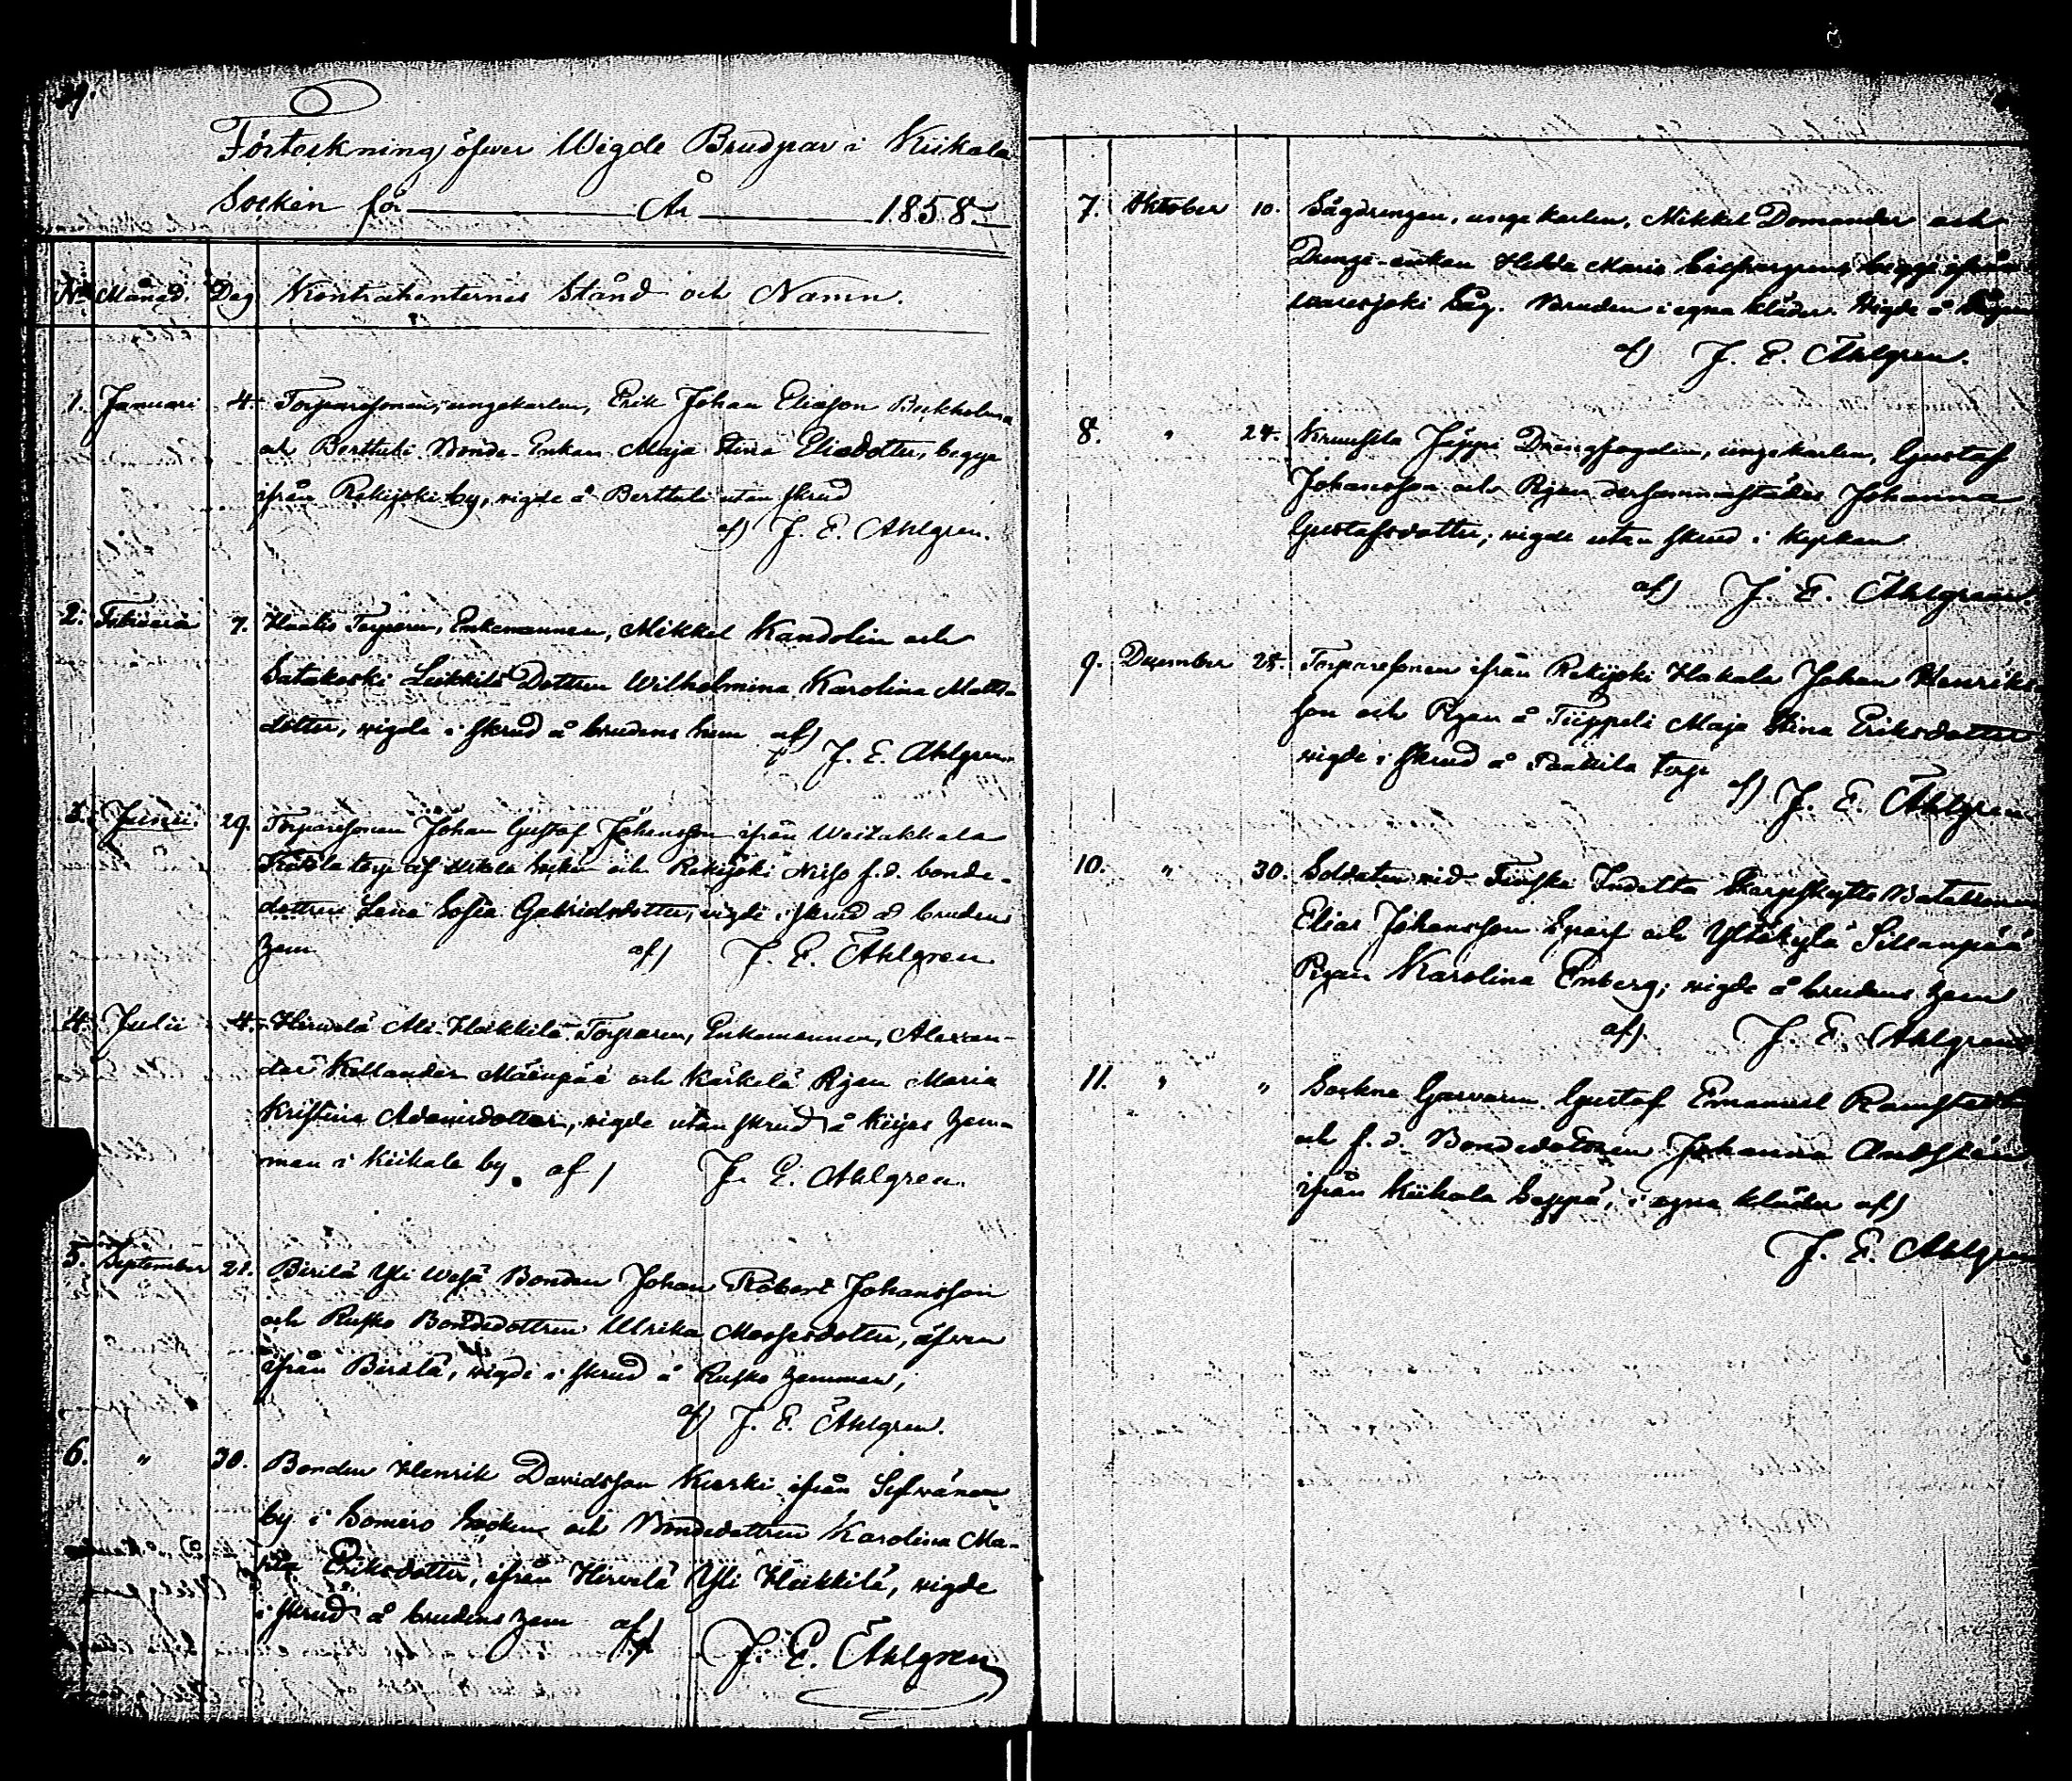 Förteckning öfver Wigde Brudpar i Kiikala
Socken för År 1858
No Månad. Dag Kontrahenternes Stånd och Namn.
1. Januari 4. Torparesonen, ungekarlen, Erik Johan Eliasson
och Berttuli Bonde-Enkan Maja Stina Eliædotter, begge
ifrån Rekijoki by, vigde å Berttuli utan skrud
af) J. E. Ahlgren.
2. Februari 7. Torparen, Enkemannen, Mikkel Kandolin och
Satakoski Leikkilä Dottren Wilhelmina Karolina Matts-
dotter, vigde i skrud å brudens hem af)
J. E. Ahlgren.
3. Junii. 29. Torparesonen Johan Gustaf Johansson ifrån
torp af socken och Rekijoki Nisso f.d. bonde-
dottren Lena Sofia Gabrielsdotter, vigde i skrud å brudens
hem af) J. E. Ahlgren
4. Julii 4. Hirvelä Ali-Heikkilä Torparen, Enkemannen, Alexan-
der Kellander Mäenpää och Kärkelä Pigan Maria
Kristina Adamsdotter, vigde utan skrud å hem-
man i Kiikala by. af) J. E. Ahlgren.
5. September 21. Pirilä Yli Wesa Bonden Johan Robert Johansson
och Rusko Bondedottren Ulrika Mosesdotter, äfven
ifrån Pirilä, vigde i skrud å Rusko hemman,
af) J. E. Ahlgren.
6. " 30. Bonden Henrik Davidsson Kurki ifrån Sylvänä
by i Somero Socken och Bondedottren Karolina Ma-
Eriksdotter, ifrån Hirvelä Yli Heikkilä, vigde
i skrud å brudens hem af) J. E. Ahlgren
7. Oktober 10. Sågdrengen, unge karlen, Mikkel Domander och
Drenge-enkan Hedda Maria begge ifrån
Såg. Bruden i egna kläder. Vigde å
af) J. E. Ahlgren.
8. " 24. Kruusila Jäppi Drengfogden, ungekarlen, Gustaf
Johansson och Pigan dersammastädes Johanna
Gustafsdotter, vigde utan skrud i kyrkan
af) J. E. Ahlgren.
9. December 28. Torparesonen ifrån Rekijoki Hakala Johan Henriks-
son och Pigan å Tiippeli Maja Stina Eriksdotter
vigde i skrud å torp af) J. E. Ahlgren
10. " 30. Soldaten vid Finska Indelta Skarpskytte Bataillonen
Elias Johansson Sparf och Yltäkylä Sillanpää
Pigan Karolina Enberg; vigde å brudens hem
af) J. E. Ahlgren
11. " " Sockne Garvaren Gustaf Emanuel Ramstedt
och f.d. Bondedottren Johanna
ifrån Kiikala Seppä, i egna kläder af)
J. E. Ahlgren